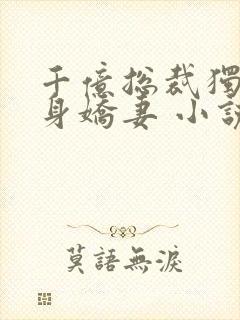 千億總裁獨
身嬌妻 小說
莫語無淚